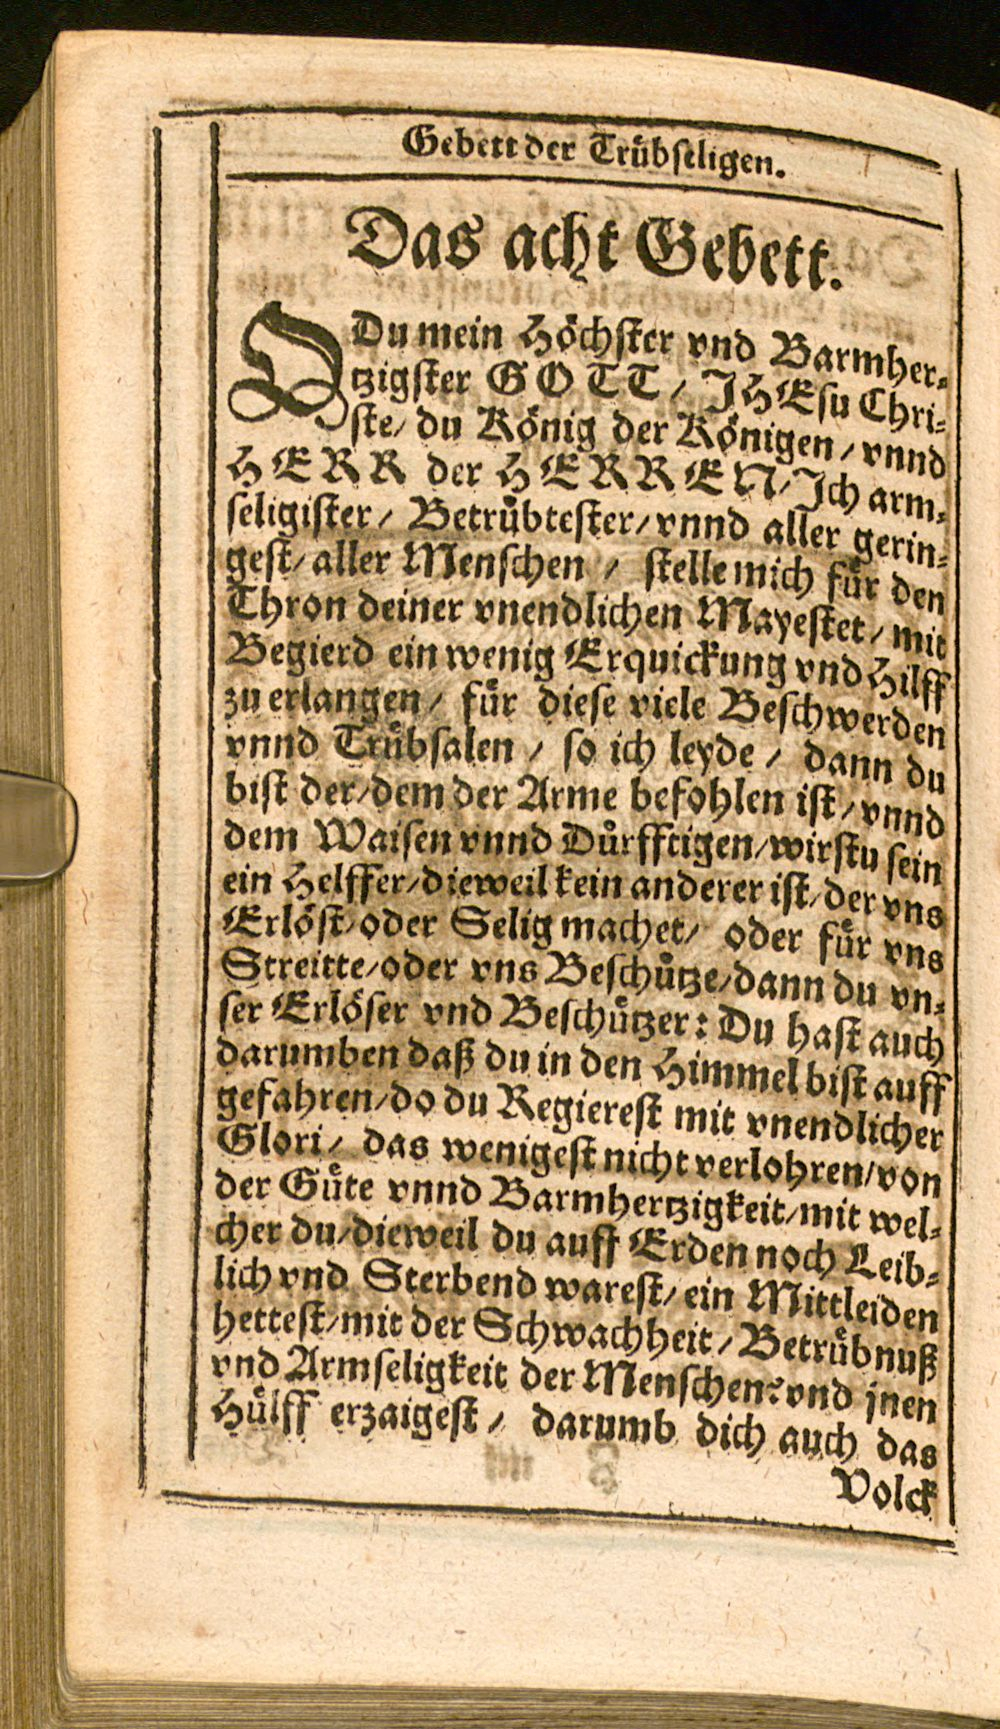 Gebett der Trübseligen.
Das acht Gebett.
O Du mein Höchster vnd Barmher-
tzigster GOTT / JHEsu Chri-
ste / du König der Königen / vnnd
HERR der HERREN / Ich arm-
seligister / Betrübtester / vnnd aller gerin-
gest / aller Menschen / stelle mich für den
Thron deiner vnendlichen Mayestet / mit
Begierd ein wenig Erquickung vnd Hilff
zu erlangen / für diese viele Beschwerden
vnnd Trübsalen / so ich leyde / dann du
bist der / dem der Arme befohlen ist / vnnd
dem Waisen vnnd Dürfftigen / wirstu sein
ein Helffer / dieweil kein anderer ist / der vns
Erlöst / oder Selig machet / oder für vns
Streitte / oder vns Beschütze / dann du vn-
ser Erlöser vnd Beschützer: Du hast auch
darumben daß du in den Himmel bist auff
gefahren / do du Regierest mit vnendlicher
Glori / das wenigest nicht verlohren / von
der Güte vnnd Barmhertzigkeit / mit wel-
cher du / dieweil du auff Erden noch Leib-
lich vnd Sterbend warest / ein Mittleiden
hettest / mit der Schwachheit / Betrübnuß
vnd Armseligkeit der Menschen? vnd jnen
Hülff erzaigest / darumb dich auch das
Volck